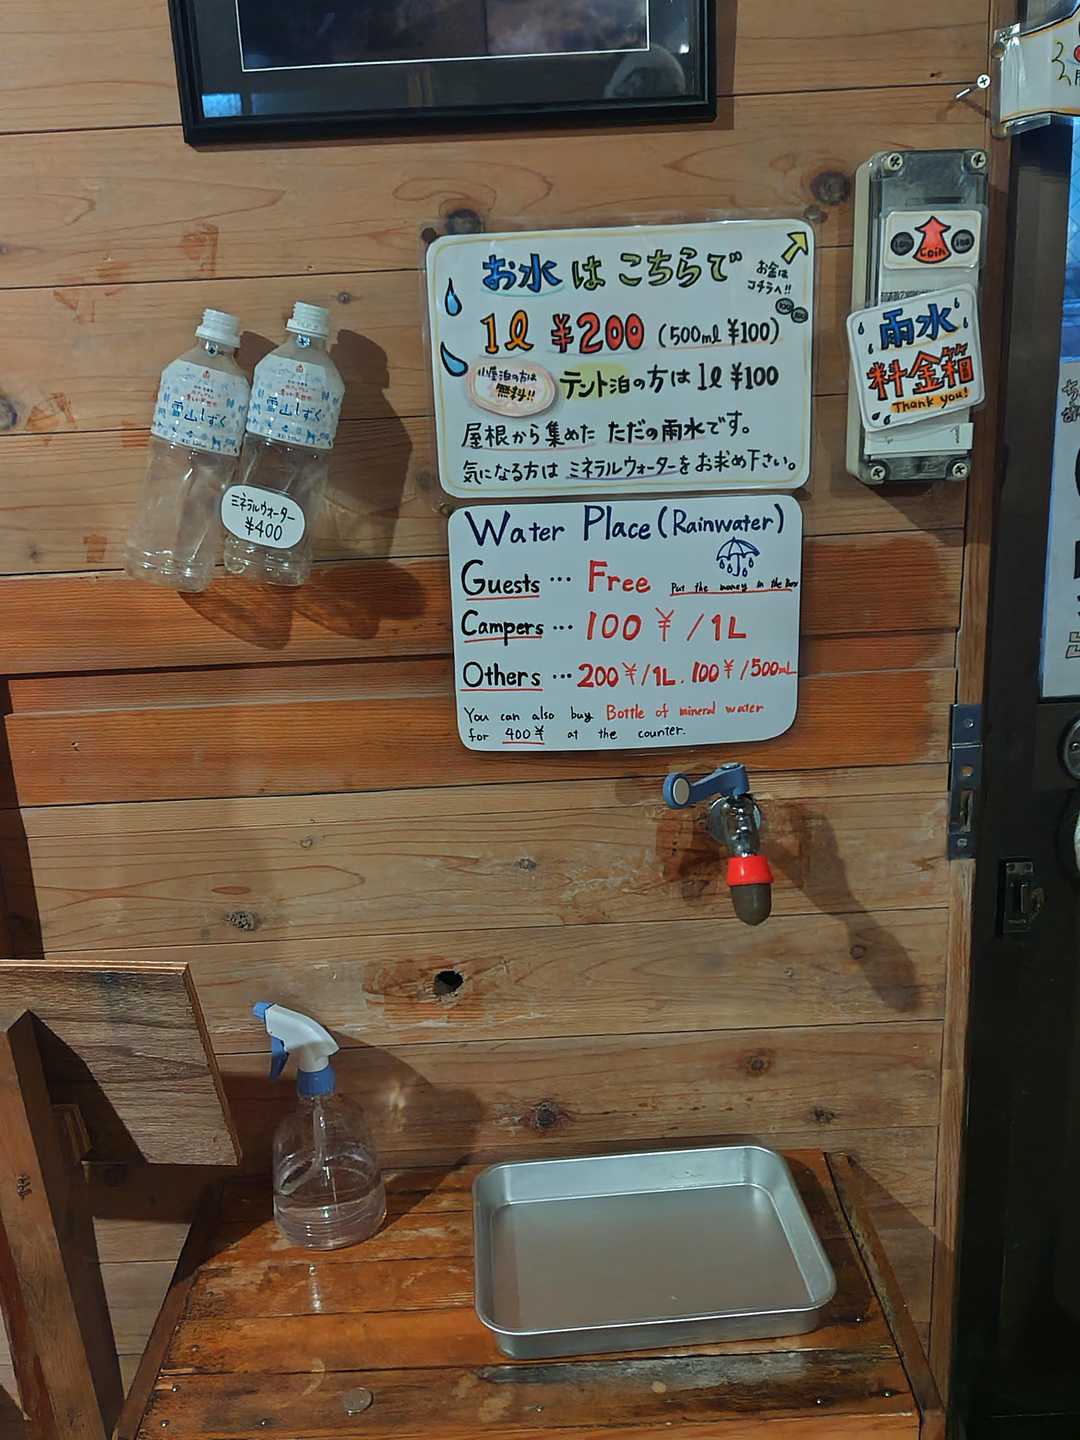 お水はこちらで
お金は
コチラへ!!
100 100
1ℓ ¥200 (500mℓ ¥100)
小屋泊の方は
無料!!
テント泊の方は 1ℓ ¥100
屋根から集めた ただの雨水です。
気になる方は ミネラルウォーターをお求め下さい。
Water Place (Rainwater)
Guests … Free
Put the money in the Box
Campers … 100 ¥ / 1L
Others … 200 ¥/1L . 100 ¥/500mL
You can also buy Bottle of mineral water
for 400 ¥ at the counter.
100 Coin 100
雨水
料金箱
Thank you!
雪山しずく
雪山しずく
ミネラルウォーター
¥400